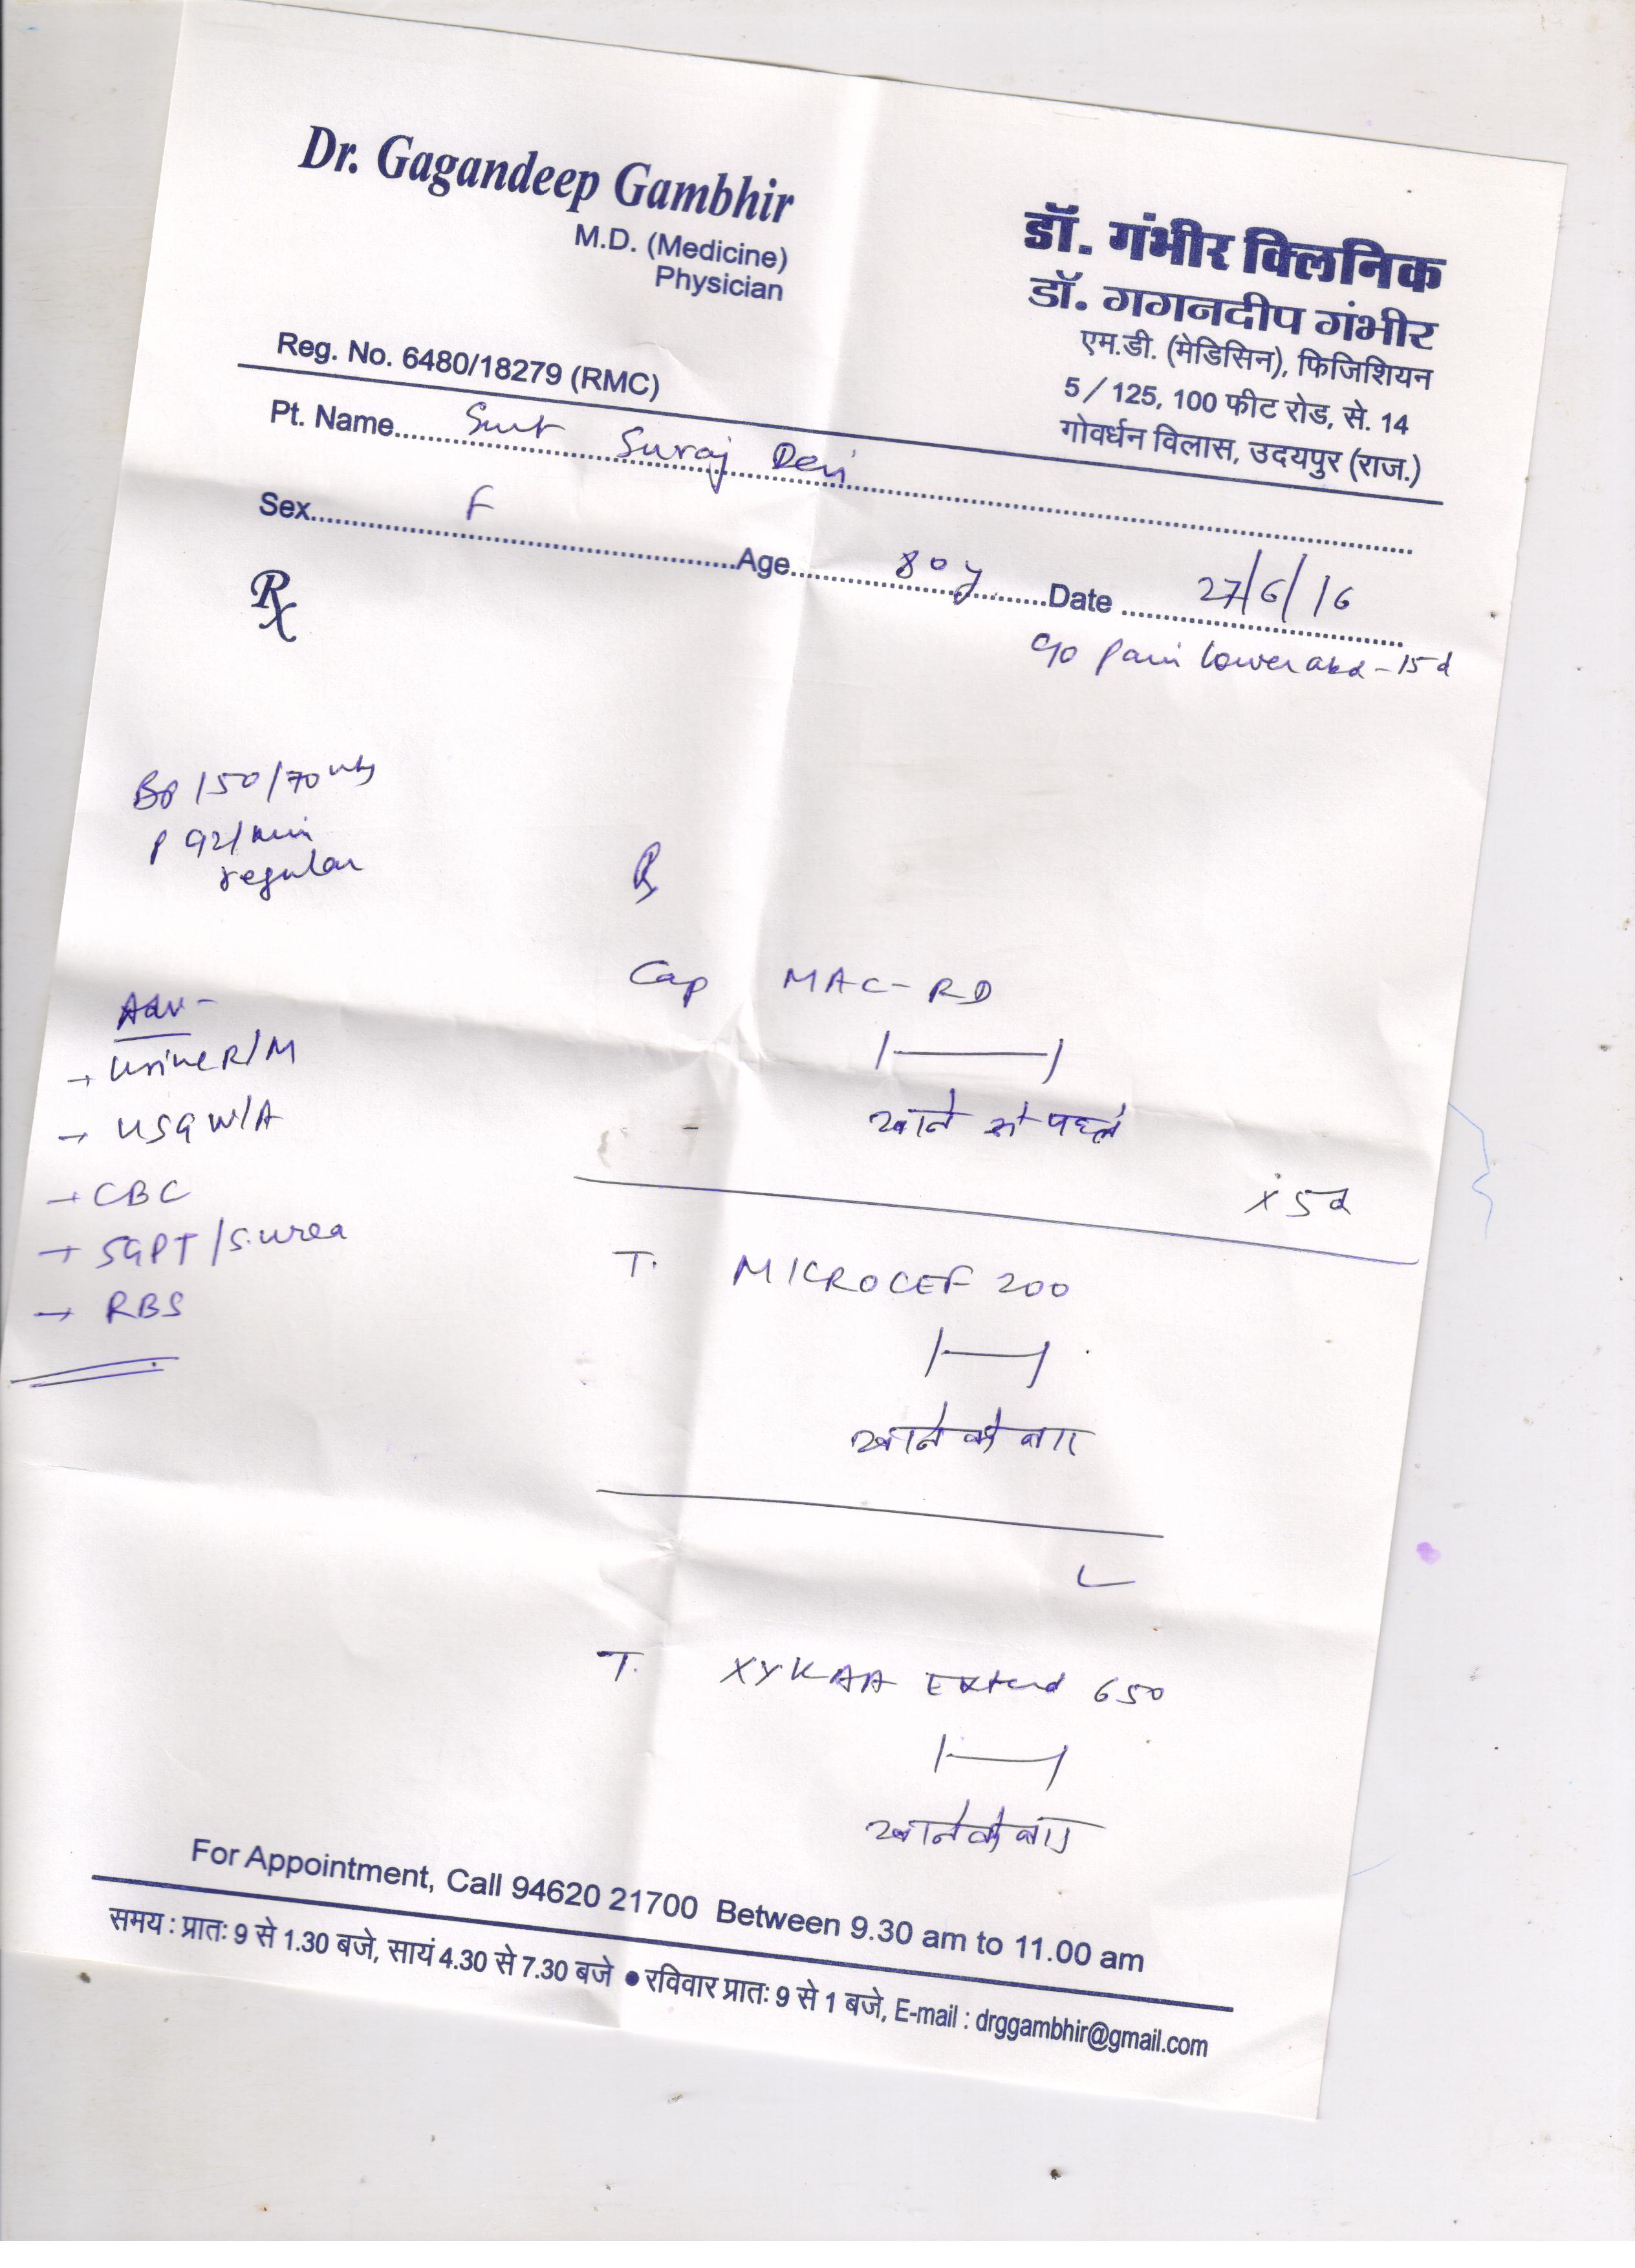 Dr. Gagandeep Gambhir
M.D. (Medicine)
Physician
Reg. No. 6480/18279 (RMC)
डॉ. गंभीर क्लिनिक
डॉ. गगनदीप गंभीर
एम.डी. (मेडिसिन), फिजिशियन
5 / 125, 100 फीट रोड, से. 14
गोवर्धन विलास, उदयपुर (राज.)
Pt. Name Smt Suraj Devi
Sex F Age 80y Date 27/6/16
Rx
c/o pain lower abd - 15d
BP 150/70
P 92/min
regular
Rx
Cap MAC-RD
|——|
खाने से पहले
x 5d
Adv -
→ Urine R/M
→ USG W/A
→ CBC
→ SGPT / S. urea
→ RBS
T. MICROCEF 200
|——|
खाने के बाद
T. XYKAA Extend 650
|——|
खाने के बाद
For Appointment, Call 94620 21700 Between 9.30 am to 11.00 am
समय : प्रातः 9 से 1.30 बजे, सायं 4.30 से 7.30 बजे ● रविवार प्रातः 9 से 1 बजे, E-mail : drggambhir@gmail.com